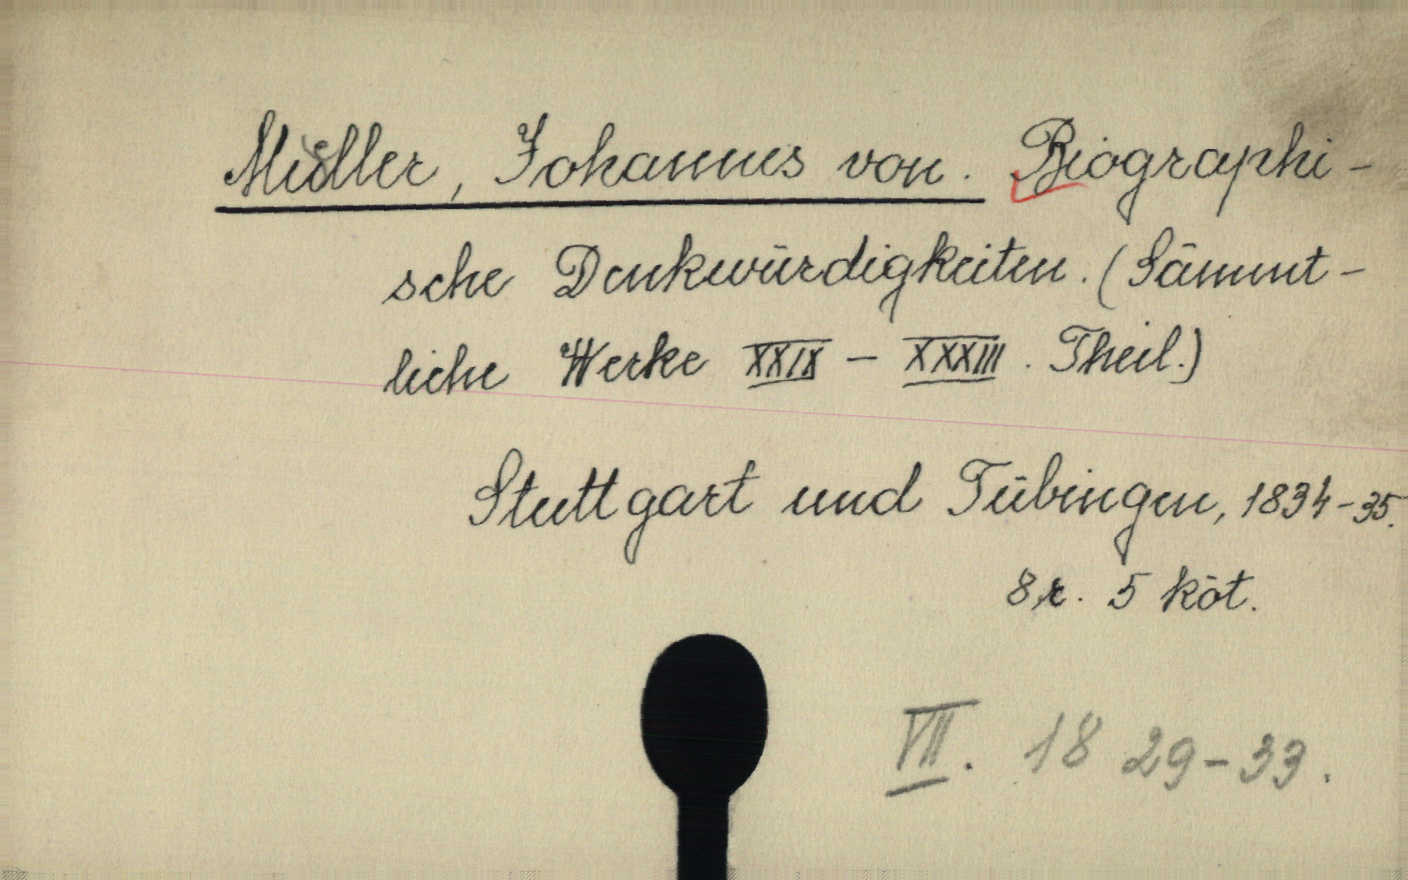 Müller, Johannes von. Biographi-
sche Denkwürdigkeiten. (Sämmt-
liche Werke XXIX – XXXIII. Theil.)
Stuttgart und Tübingen, 1834-35.
8r. 5 köt.
VII. 18 29-33.